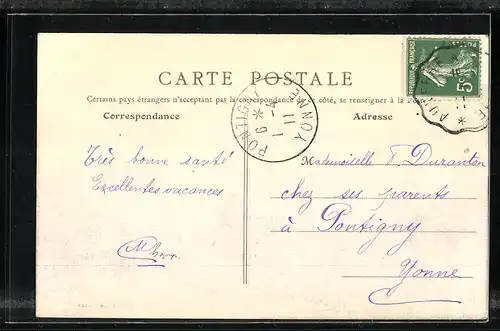 CARTE POSTALE
Certains pays étrangers n'acceptant pas la correspondance de ce côté, se renseigner à la Poste
Correspondance
Adresse
PONTIGNY
YONNE
REPUBLIQUE FRANÇAISE
POSTES
5c
Très bonne santé
Excellentes vacances
Mademoiselle F. Duranton
chez ses parents
à Pontigny
Yonne